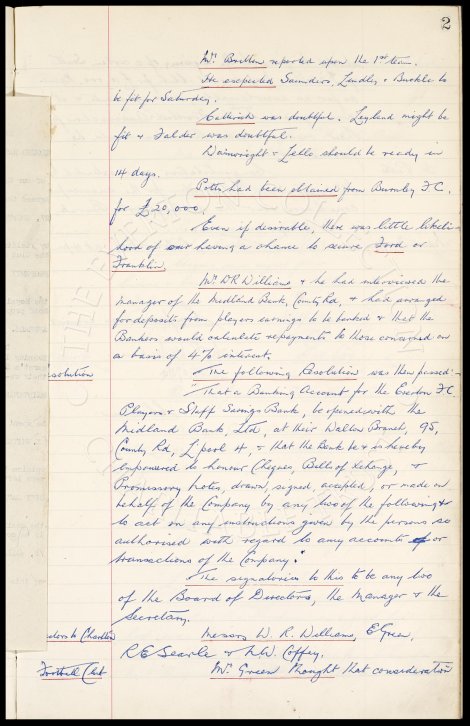 2
Mr. Britton reported upon the 1st team.
He expected Saunders, Lindley & Buckle to
be fit for Saturday.
Catterick was doubtful. Leyland might be
fit & Falder was doubtful.
Wainwright & Lello should be ready in
14 days.
Potts had been obtained from Burnley F.C.
for £20,000.
Even if desirable, there was little likeli-
hood of our having a chance to secure Ford or
Franklin.
Mr. W.R. Williams & he had interviewed the
manager of the Midland Bank, County Rd, & had arranged
for deposits from players earnings to be banked & that the
Bankers would calculate repayments to those concerned on
a basis of 4% interest.
solution
The following Resolution was then passed:-
That a Banking Account for the Everton F.C.
Players & Staff Savings Bank, be opened with the
Midland Bank, Ltd, at their Walton Branch, 95,
County Rd, L'pool 4, & that the Bank be & is hereby
empowered to honour Cheques, Bills of Exchange, &
Promissory Notes, drawn, signed, accepted, or made on
behalf of the Company by any two of the following &
to act on any instructions given by the persons so
authorised with regard to any accounts or
transactions of the Company.
The signatories to this to be any two
of the Board of Directors, the Manager & the
Secretary.
ectors to Charlton
Football Club
Messrs W. R. Williams, E Green,
R E Searle & N.W. Coffey.
Mr. Green thought that consideration